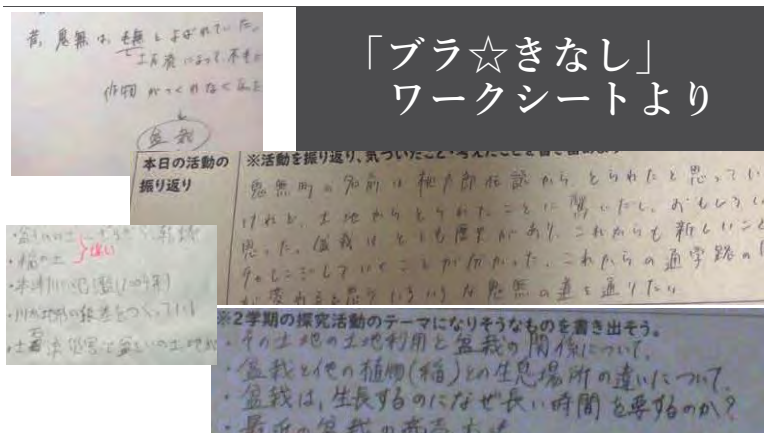 「ブラ☆きなし」
ワークシートより
昔、鬼無は、毛無とよばれていた。
土石流によって、不毛
作物がつくれなく
盆栽
本日の活動の
振り返り
※活動を振り返り、気づいたこと・考えたことを書き留めよう
鬼無町の名前は桃太郎伝説から、とられたと思ってい
けれど、土地からとられたことに驚いたし、おもしろい
思った。盆栽はとても歴史があり、これからも新しいこと
チャレンジしていくことが分かった。これからの通学路の
が変わると思う。いろいろな鬼無の道を通りたい
・盆さいの土
・稲の土
違い
・本津川の氾濫(2004年)
・川が地形の段差をつくっている
※2学期の探究活動のテーマになりそうなものを書き出そう。
・その土地の土地利用と盆栽の関係について。
・盆栽と他の植物(稲)との生息場所の違いについて。
・盆栽は、生長するのになぜ長い時間を要するのか?
・最近の盆栽の商売